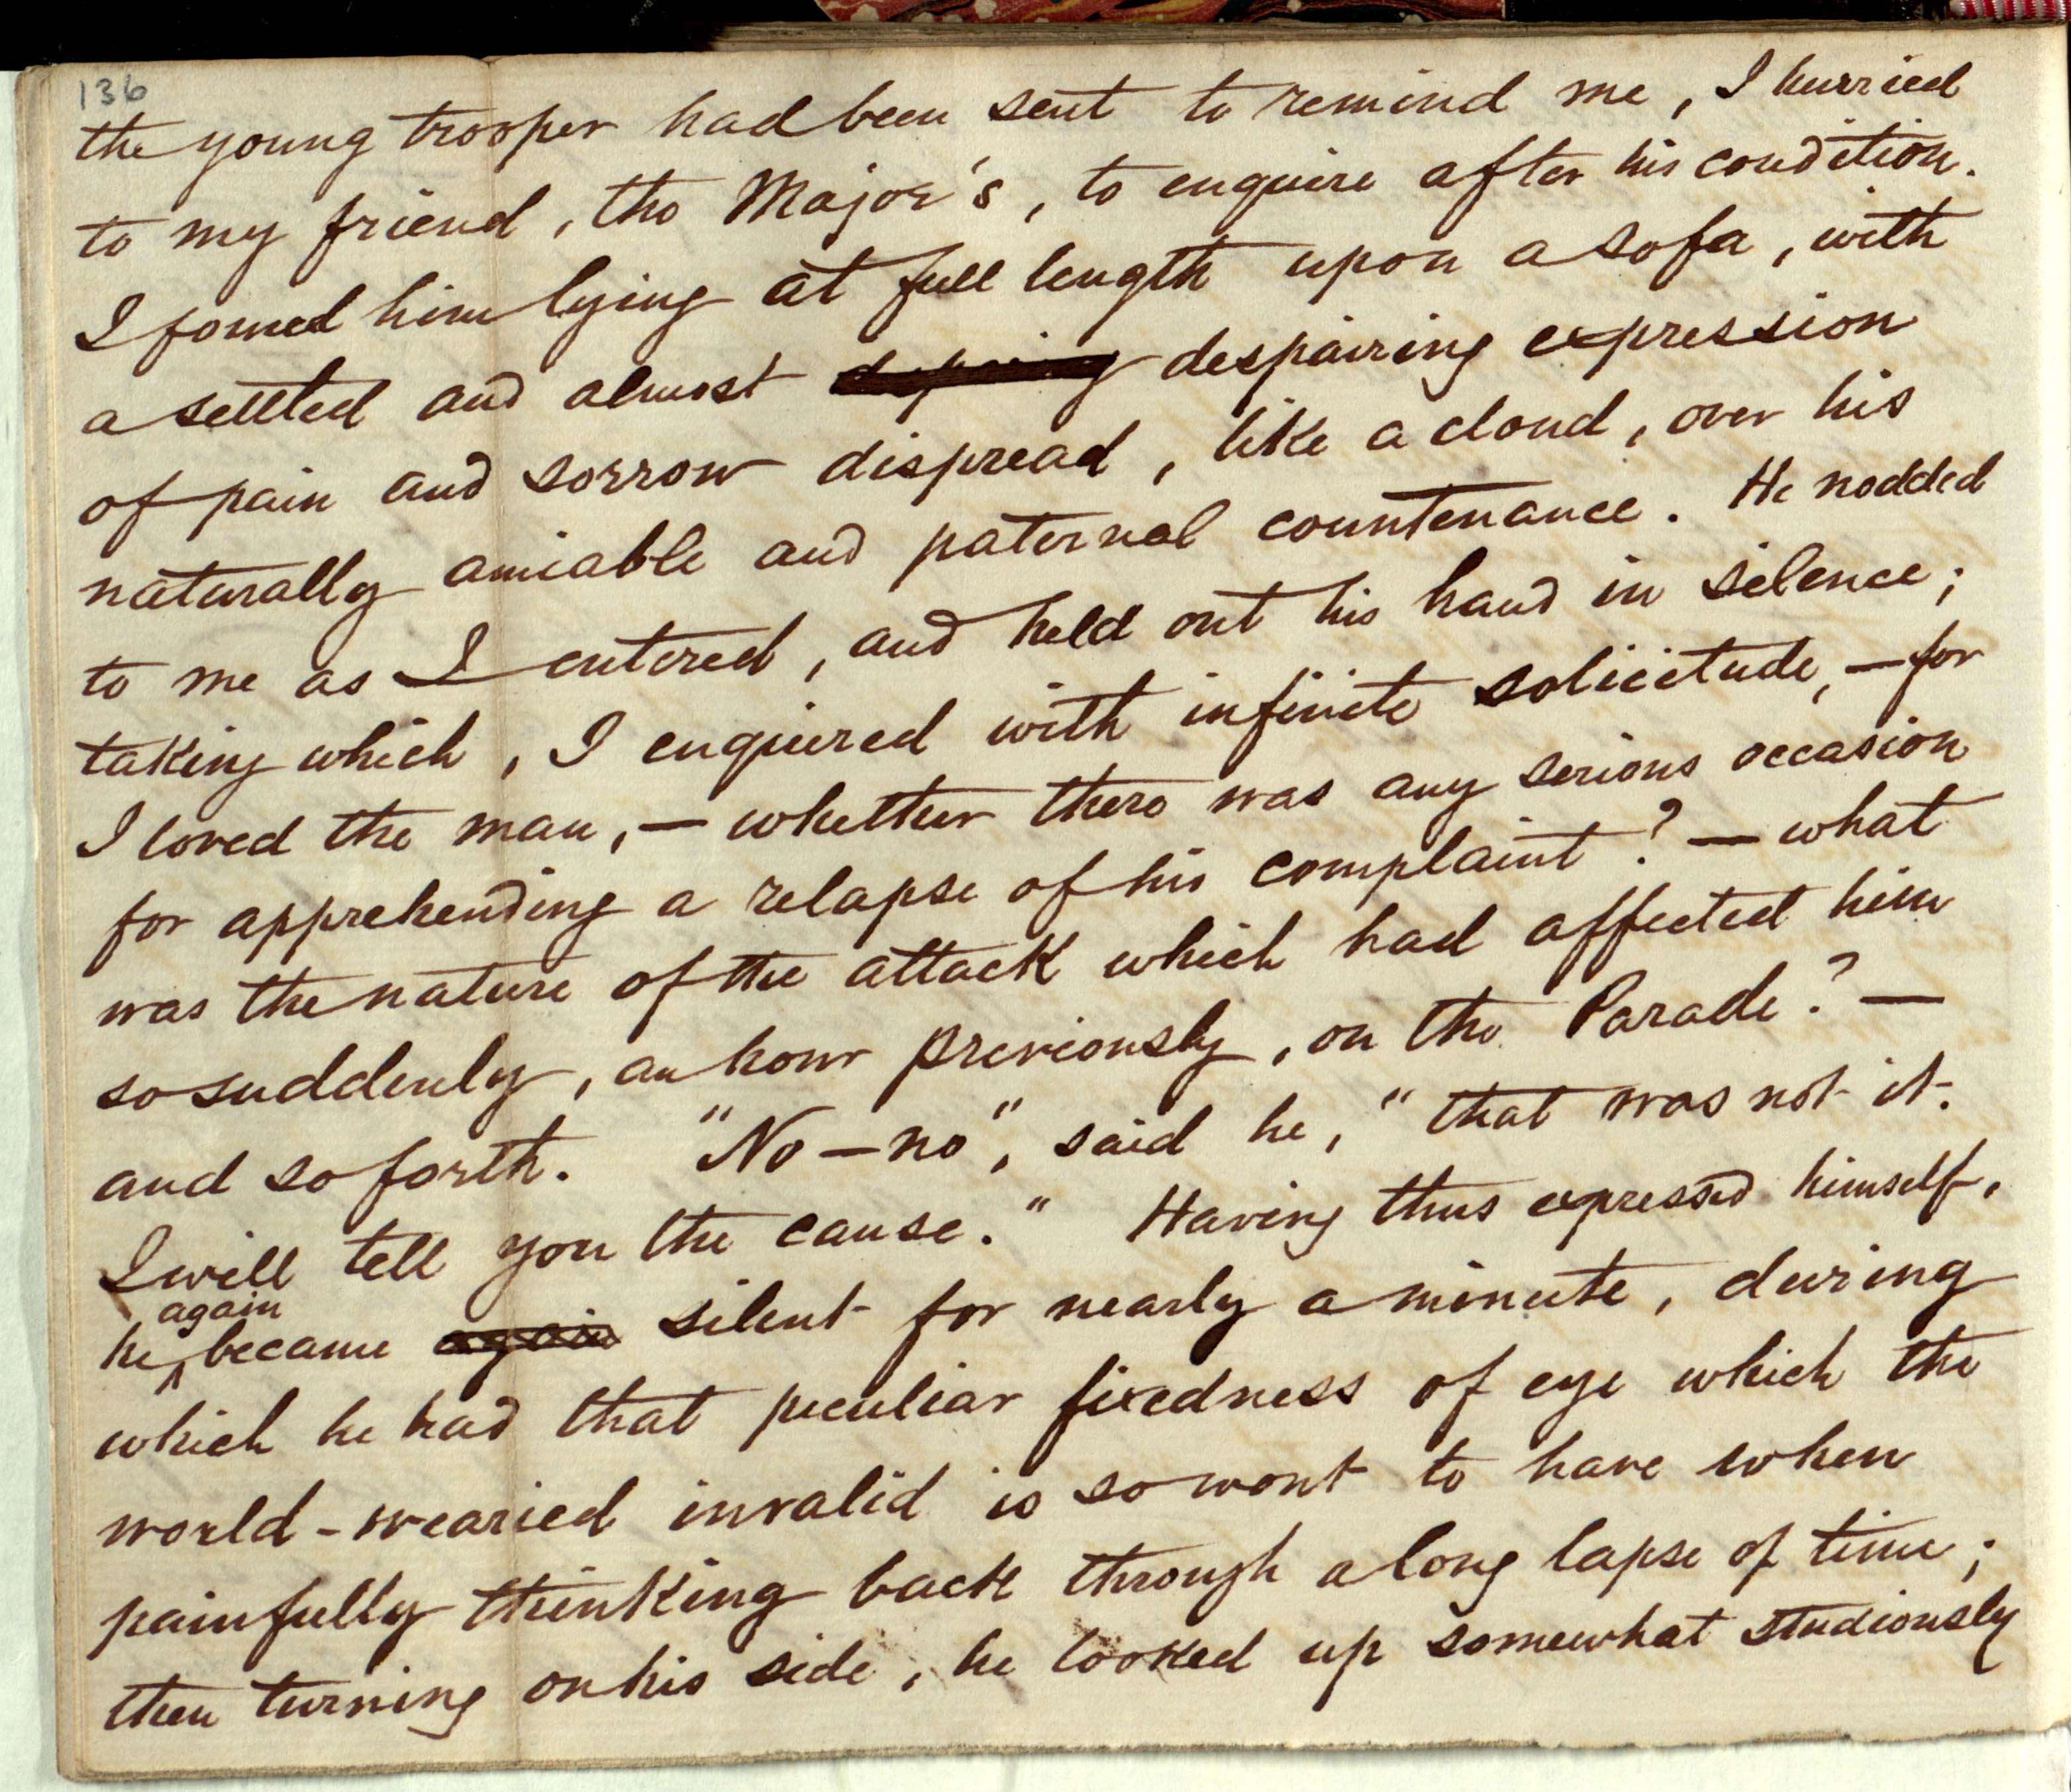 136
the young trooper had been sent to remind me, I hurried
to my friend, the Major's, to enquire after his condition.
I found him lying at full length upon a sofa, with
a settled and almost despairing expression
of pain and sorrow dispread, like a cloud, over his
naturally amiable and paternal countenance. He nodded
to me as I entered, and held out his hand in silence;
taking which, I enquired with infinite solicitude, — for
I loved the man, — whether there was any serious occasion
for apprehending a relapse of his complaint? — what
was the nature of the attack which had affected him
so suddenly, an hour previously, on the Parade? —
and so forth. "No — no", said he, "that was not it.
I will tell you the cause." Having thus expressed himself,
again
he ‸ became again silent for nearly a minute, during
which he had that peculiar fixedness of eye which the
world-wearied invalid is so wont to have when
painfully thinking back through a long lapse of time;
then turning on his side, he looked up somewhat studiously